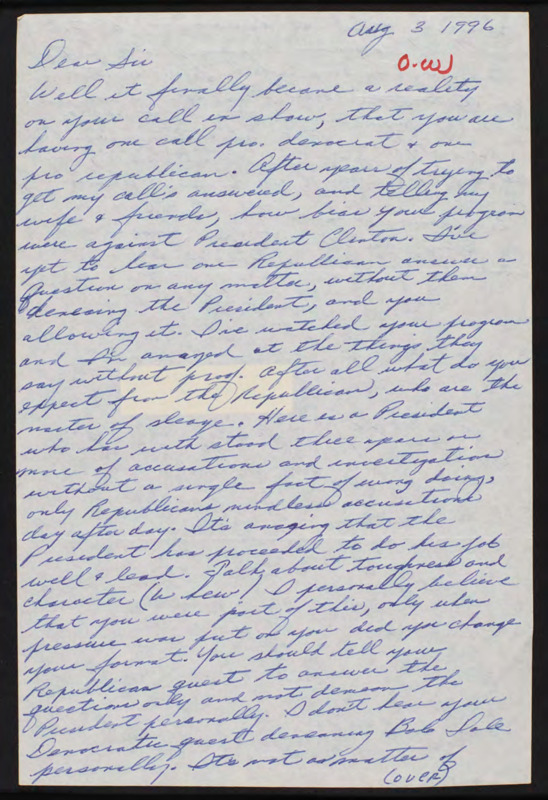 Aug 3 1996
O.W
Dear Sir
Well it finally became a reality
on your call in show, that you are
having one call pro. democrat & one
pro republican. After years of trying to
get my call's answered, and telling my
wife & friends, how bias your program
were against President Clinton. I've
yet to hear one Republican answer a
question on any matter, without them
demeaning the President, and you
allowing it. I've watched your program
and I'm amazed at the things they
say without proof. After all what do you
expect from the Republican, who are the
master of sleaze. Here is a President
who has with stood three years or
more of accusations and investigation
without a single fact of wrong doing,
only Republicans mindless accusations
day after day. It's amazing that the
President has proceeded to do his job
well & lead. Talk about toughness and
character (Whew) I personally believe
that you were part of this, only when
pressure was put on you did you change
your format. You should tell your
Republican guest to answer the
questions only and not demean the
President personally. I don't hear your
Democratic guest demeaning Bob Dole
personally. It's not a matter of
(over)